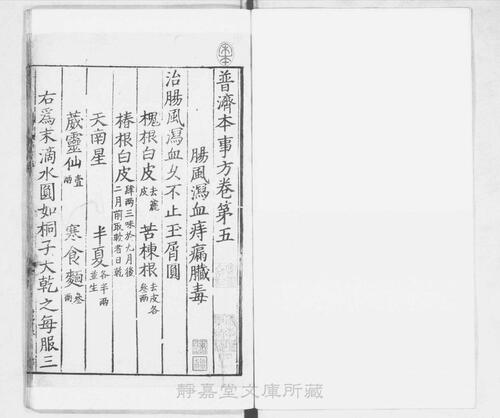 普濟本事方卷第五
腸風瀉血痔漏臟毒
治腸風瀉血久不止玉屑圓
槐根白皮去麄皮 苦楝根去皮各叁兩
椿根白皮肆兩三味於九月後二月前取軟者日乾
天南星 半夏各半兩並生
葳靈仙壹兩 寒食麵叁兩
右爲末滴水圓如桐子大乾之每服三
靜嘉堂文庫所藏